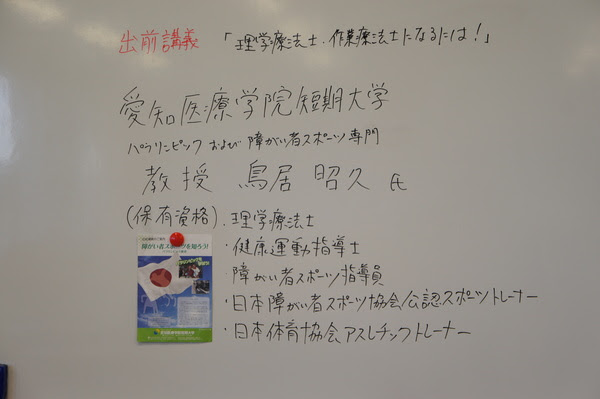 出前講義 「理学療法士・作業療法士になるには!」
愛知医療学院短期大学
パラリンピック および 障がい者スポーツ専門
教授 鳥居 昭久 氏
(保有資格)・理学療法士
・健康運動指導士
・障がい者スポーツ指導員
・日本障がい者スポーツ協会公認スポーツトレーナー
・日本体育協会アスレチックトレーナー
障がい者スポーツを知ろう!